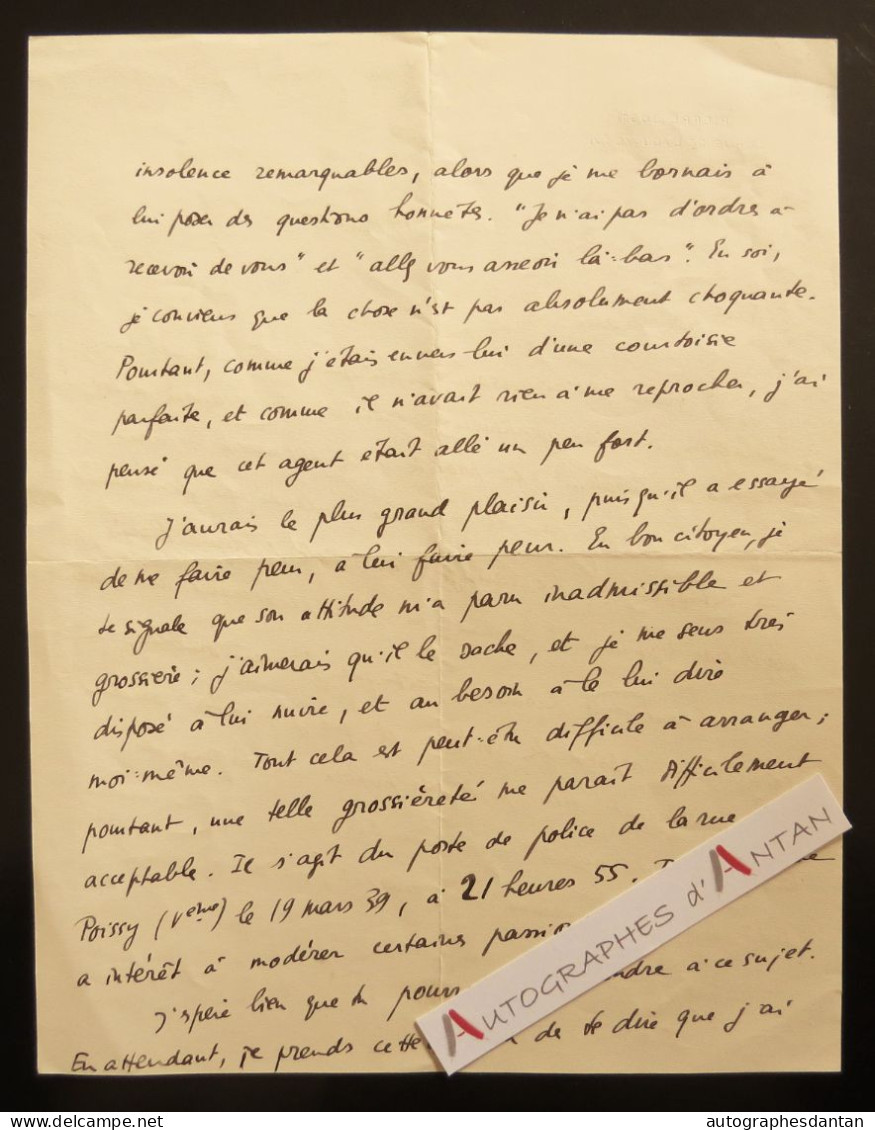 insolence remarquables, alors que je me bornais à
lui poser des questions honnêtes. "Je n'ai pas d'ordres à
recevoir de vous" et "allez vous asseoir là-bas". En soi,
je conviens que la chose n'est pas absolument choquante.
Pourtant, comme j'étais envers lui d'une courtoisie
parfaite, et comme il n'avait rien à me reprocher, j'ai
pensé que cet agent était allé un peu fort.
J'aurais le plus grand plaisir, puisqu'il a essayé
de me faire peur, à lui faire peur. En bon citoyen, je
te signale que son attitude m'a paru inadmissible et
grossière ; j'aimerais qu'il le sache, et je me sens très
disposé à lui nuire, et au besoin à le lui dire
moi-même. Tout cela est peut-être difficile à arranger ;
pourtant, une telle grossièreté me paraît difficilement
acceptable. Il s'agit du poste de police de la rue
Poissy (Vème) le 19 mars 39, à 21 heures 55.
a intérêt à modérer certaines
J'espère bien que tu à ce sujet.
En attendant, je prends de te dire que j'ai
AUTOGRAPHES d'ANTAN
autographesdantan